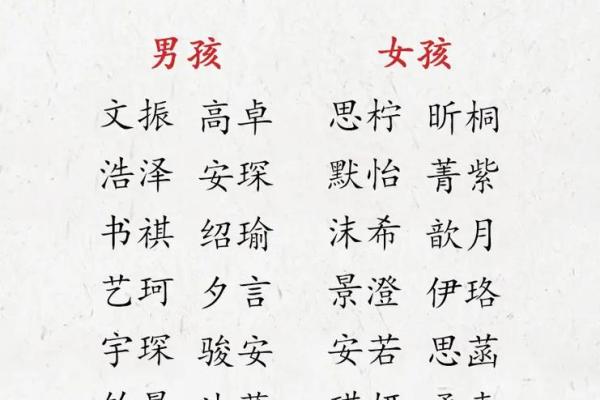 男孩 女孩
文振 高卓 思柠 昕桐
浩泽 安琛 默怡 菁紫
书祺 绍瑜 沫希 歆月
艺珂 夕言 景澄 伊珞
宇琛 骏安 安若 思菡